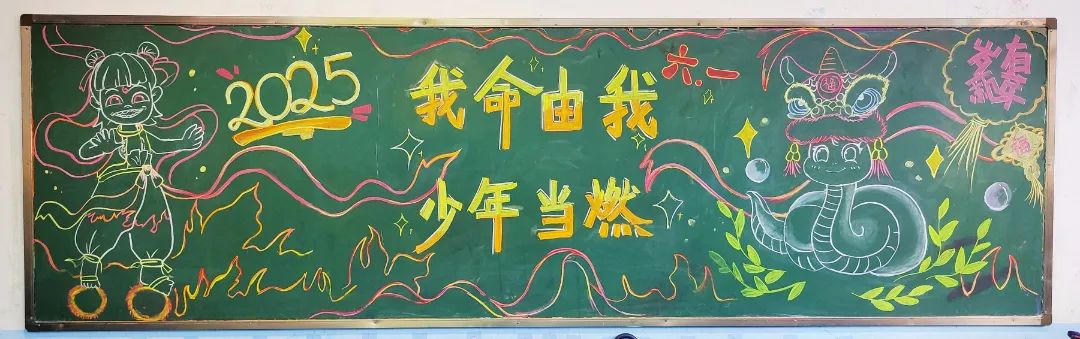 2025
我命由我
六.一
少年当燃
福
福